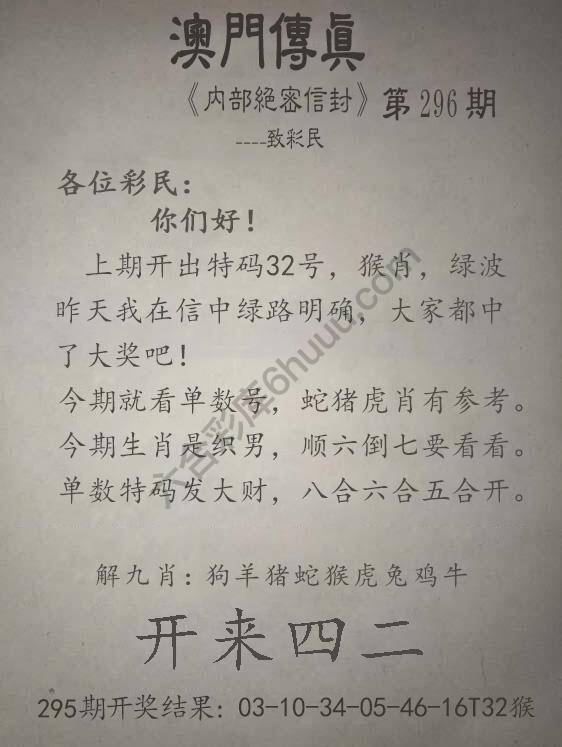 澳門傳眞
《内部絕密信封》第296期
----致彩民
各位彩民：
你们好！
上期开出特码32号，猴肖，绿波
昨天我在信中绿路明确，大家都中
了大奖吧！
今期就看单数号，蛇猪虎肖有参考。
今期生肖是织男，顺六倒七要看看。
单数特码发大财，八合六合五合开。
解九肖：狗羊猪蛇猴虎兔鸡牛
开来四二
295期开奖结果：03-10-34-05-46-16T32猴
六合彩库6huuu.com